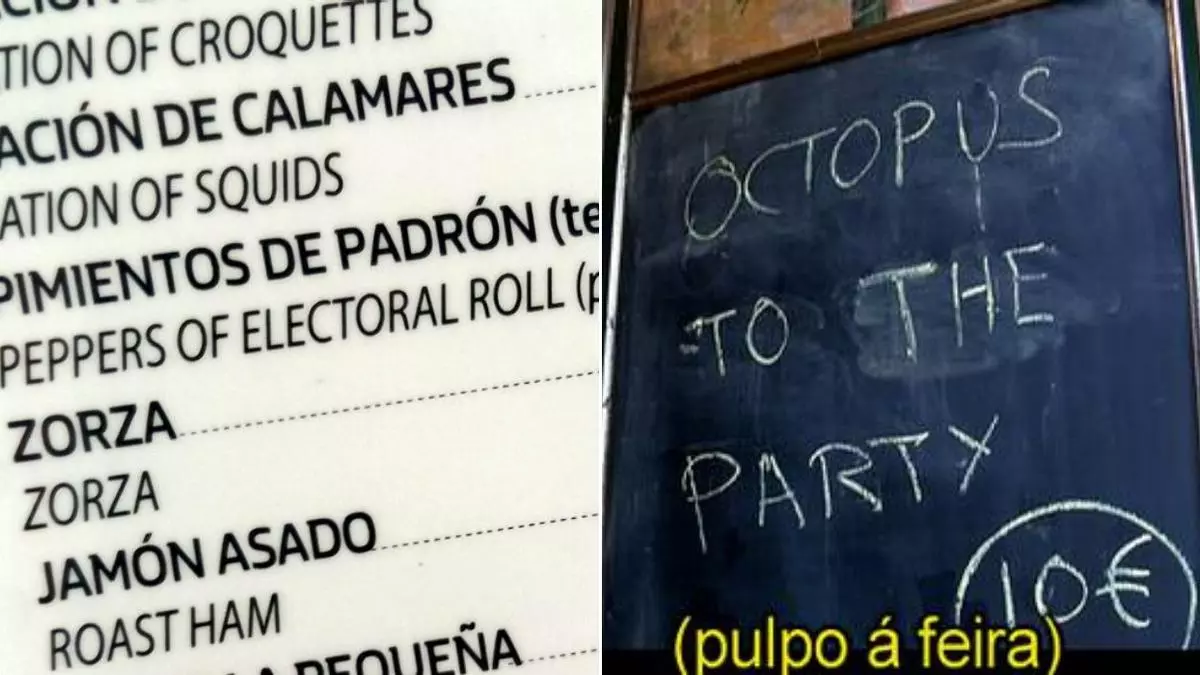 TION OF CROQUETTES
ACIÓN DE CALAMARES
ATION OF SQUIDS
PIMIENTOS DE PADRÓN (te
PEPPERS OF ELECTORAL ROLL (p
ZORZA
ZORZA
JAMÓN ASADO
ROAST HAM
PEQUEÑA
OCTOPUS
TO THE
PARTY
10€
(pulpo á feira)